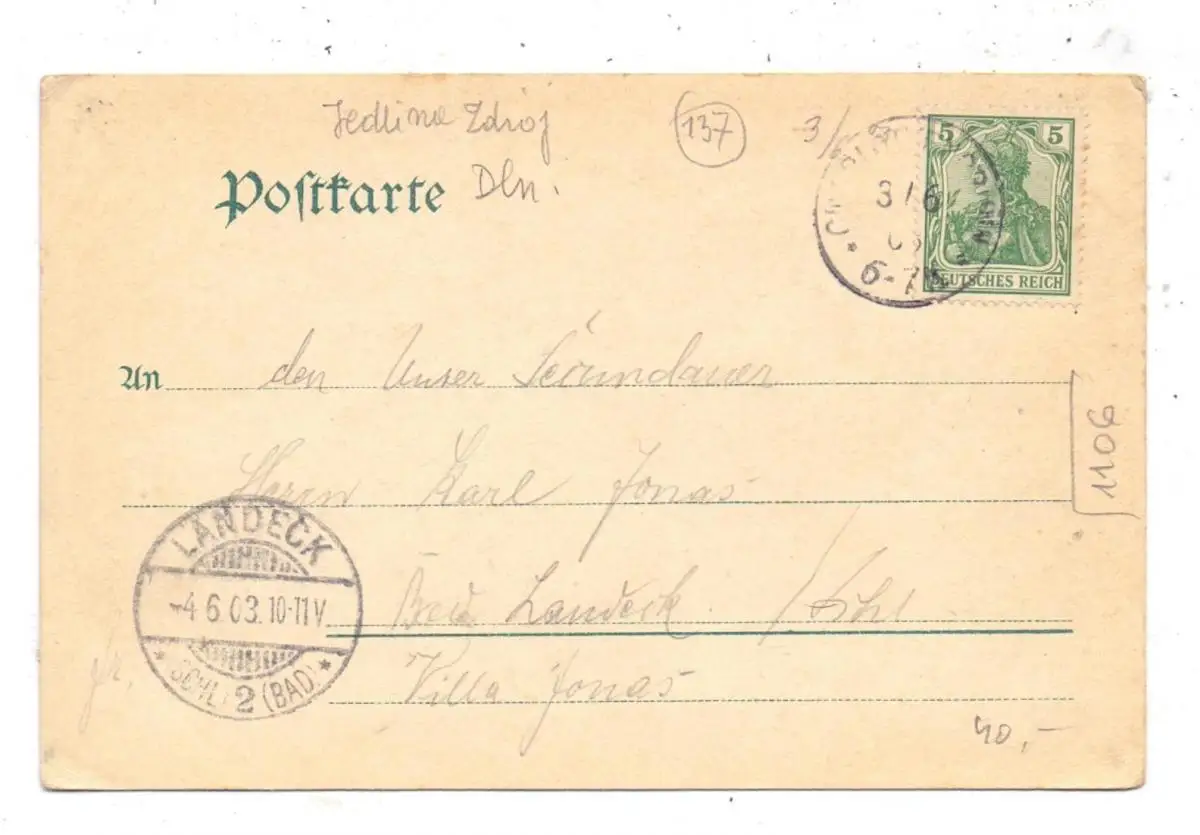 Jedlina Zdrój
137
3/
Postkarte
Dln.
5 5
3/6
6-7
DEUTSCHES REICH
An den Unser
Herrn Karl Jonas
Bad Landeck /Schl
Villa Jonas
LANDECK
4.6.03.10-11V
* SCHL. 2 (BAD) *
1106
40,-